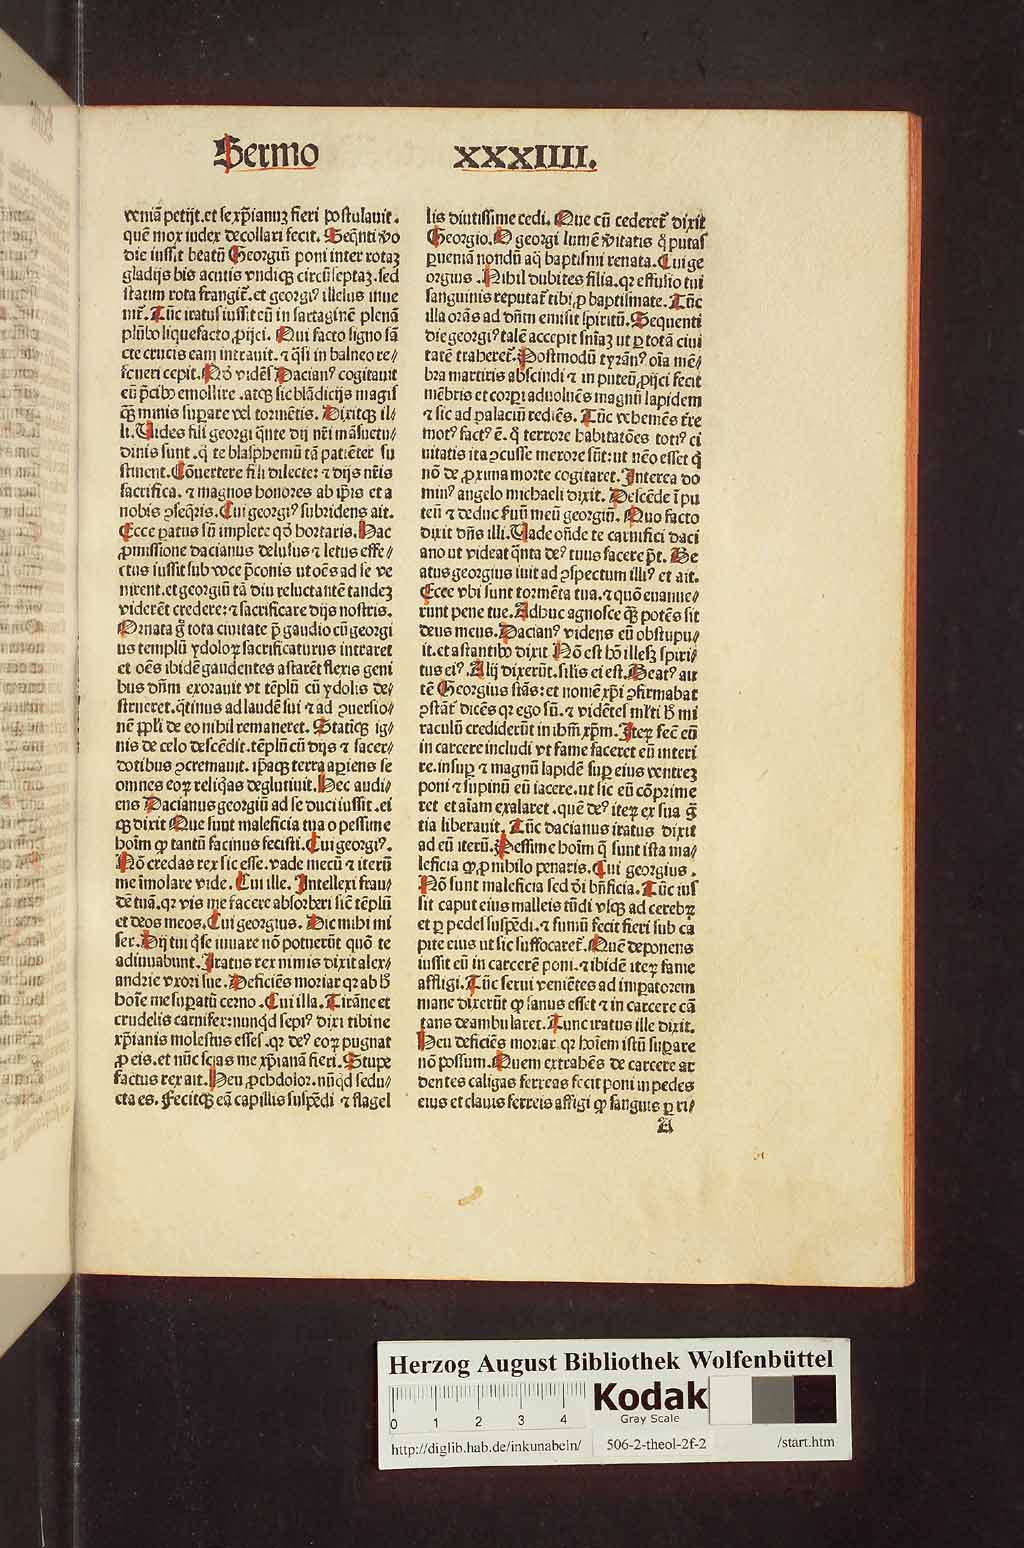 Sermo XXXIIII.
veniã petijt.et se xp̃ianuꝫ fieri postulauit.
quẽ mox iudex decollari fecit. Seq̃nti v̾o
die iussit beatũ Georgiũ poni inter rotaꝫ
gladijs bis acutis vndiqꝫ circũseptaꝫ.sed
statim rota frangit̃.et georgiꝰ illesus inue
nit̃. Tũc iratus iussit eũ in sartaginẽ plenã
plũbo liquefacto ꝓijci. Qui facto signo sã
cte crucis eam intrauit. ⁊ q̃si in balneo re⸗
foueri cepit. Qd̾ vidẽs Dacianꝰ cogitauit
eũ p̃cibꝰ emollire .atqꝫ sic blãdicijs magis
q̃ꝫ minis supare vel tormẽtis. Dixitqꝫ il⸗
li. Uides fili georgi q̃nte dij nr̃i mãsuetu⸗
dinis sunt .q̃ te blasphemũ tã patiẽter su
stinent. Cõuertere fili dilecte: ⁊ dijs nr̃is
sacrifica. ⁊ magnos honores ab ip̃is et a
nobis ꝯseq̃ris. Cui georgiꝰ subridens ait.
Ecce ꝑatus sũ implere qd̾ hortaris. Hac
ꝓmissione dacianus delusus ⁊ letus effe⸗
ctus iussit sub voce p̃conis ut oẽs ad se ve
nirent.et georgiũ tã diu reluctantẽ tandeꝫ
viderẽt credere: ⁊ sacrificare dijs nostris.
Ornata g̃ tota ciuitate p̃ gaudio cũ georgi
us templũ ydoloꝝ sacrificaturus intraret
et oẽs ibidẽ gaudentes astarẽt flexis geni
bus dñm exorauit vt tẽplũ cũ ydolis de⸗
strueret.q̃tinus ad laudẽ sui ⁊ ad ꝯuersio⸗
nẽ pp̃li de eo nihil remaneret. Statiqꝫ ig⸗
nis de celo descẽdit.tẽplũ cũ dijs ⁊ sacer⸗
dotibus ꝯcremauit. ip̃aqꝫ terra apiens se
omnes eoꝝ reliq̃as deglutiuit. Hec audi⸗
ens Dacianus georgiũ ad se duci iussit .ei
qꝫ dixit Que sunt maleficia tua o pessime
hoim̃ qꝙ tantũ facinus fecisti. Cui georgiꝰ.
Nõ credas rex sic esse. vade mecũ ⁊ iterũ
me ĩmolare vide. Cui ille. Intellexi frau⸗
dẽ tuã. qꝛ vis me facere absorberi sic̃ tẽplũ
et deos meos. Cui georgius. Dic mihi mi
ser. Dij tui q̃ se iuuare nõ potuerũt quõ te
adiuuabunt. Iratus rex nimis dixit alex⸗
andrie vxori sue. Deficiẽs moriar qꝛ ab h̾
hoĩe me supatũ cerno. Cui illa. Tirãne et
crudelis carnifex: nunq̃d sepiꝰ dixi tibi ne
xp̃ianis molestus esses. qꝛ deꝰ eoꝝ pugnat
ꝓ eis. et nũc scias me xp̃ianã fieri. Stupe
factus rex ait. Heu ꝓch dolor. nũq̃d sedu⸗
cta es. Fecitqꝫ eã capillis suspẽdi ⁊ flagel
lis diutissime cedi. Que cũ cederet̃ dixit
Georgio. O georgi lumẽ v̾itatis q̃ putas
ꝑueniã nondũ aq̃ baptismi renata. Cui ge
orgius. Nihil dubites filia. qꝛ effusio tui
sanguinis reputat̃ tibi ꝓ baptismate. Tũc
illa orãs ad dñm emisit spiritũ. Sequenti
die georgiꝰ talẽ accepit sniã⁊ ut ꝑ totã ciui
tatẽ traheret̃. Postmodũ tyranꝰ oĩa mẽ⸗
bra martiris abscindi ⁊ in puteũ ꝓijci fecit
mẽbris et corpi aduoluẽs magnũ lapidem
⁊ sic ad palaciũ rediẽs. Tũc vehemẽs t̾re
motꝰ factꝰ ẽ. q̃ terrore habitatões totiꝰ ci
uitatis ita ꝯcusse merore sũt: ut nẽo esset q̃
nõ de ꝓxima morte cogitaret. Interea do
minꝰ angelo michaeli dixit. Descẽde ĩ pu
teũ ⁊ educ s̾uũ meũ georgiũ. Quo facto
dixit dñs illi. Uade oñde te carnifici daci
ano ut videat q̃nta deꝰ tuus facere põt. Be
atus georgius iuit ad ꝯspectum illiꝰ et ait.
Ecce vbi sunt tormẽta tua. ⁊ quõ euanue⸗
runt pene tue. Adhuc agnosce q̃ꝫ potẽs sit
deus meus. Dacianꝰ videns eũ obstupu⸗
it. et astantibꝰ dixit Nõ est h̾ ille sꝫ spiri⸗
tus eiꝰ. Alij dixerũt. silis ei est. Beatꝰ au
tẽ Georgius stãs: et nomẽ xp̃i ꝯfirmabat
ꝯstãt̃ dicẽs qꝛ ego sũ. ⁊ vidẽtes ml̾ti h̾ mi
raculũ crediderũt in ihm̃ xp̃m. Iteꝝ fec̃ eũ
in carcere includi vt fame faceret eũ interi
re. insup ⁊ magnũ lapidẽ sup eius ventreꝫ
poni ⁊ supinũ eũ iacere. ut sic eũ cõprime
ret et aĩam exalaret .quẽ deꝰ iteꝝ ex sua g̃
tia liberauit. Tũc dacianus iratus dixit
ad eũ iterũ. Pessime hoim̃ q̃ sunt ista ma⸗
leficia qꝙ ꝓ nihilo penaris. Cui georgius.
Nõ sunt maleficia sed d̾i bñficia. Tũc ius
sit caput eius malleis tũdi vsqꝫ ad cerebꝝ
et ꝑ pedes suspẽdi. ⁊ fumũ fecit fieri sub ca
pite eius ut sic suffocaret̃. Quẽ deponens
iussit eũ in carcerẽ poni. ⁊ ibidẽ iteꝝ fame
affligi. Tũc serui veniẽtes ad impatorem
mane dixerũt qꝙ sanus esset ⁊ in carcere cã
tans deambularet. Tunc iratus ille dixit.
Heu deficiẽs moriar qꝛ hoiem istũ supare
nõ possum. Quem extrahẽs de carcere ar
dentes caligas ferreas fecit poni in pedes
eius et clauis ferreis affligi qꝙ sanguis ꝑ ri⸗
A
Herzog August Bibliothek Wolfenbüttel
0 1 2 3 4
Kodak
Gray Scale
http://diglib.hab.de/inkunabeln/ 506-2-theol-2f-2 /start.htm